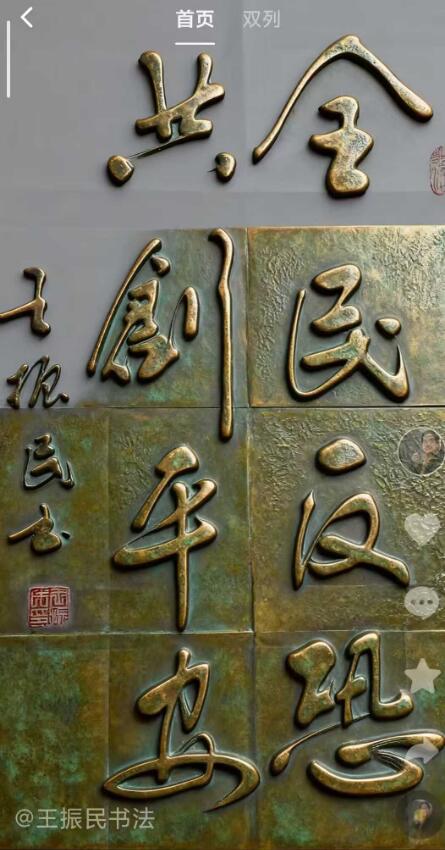 首页 双列
全民反恐
共創平安
王振民书
@王振民书法